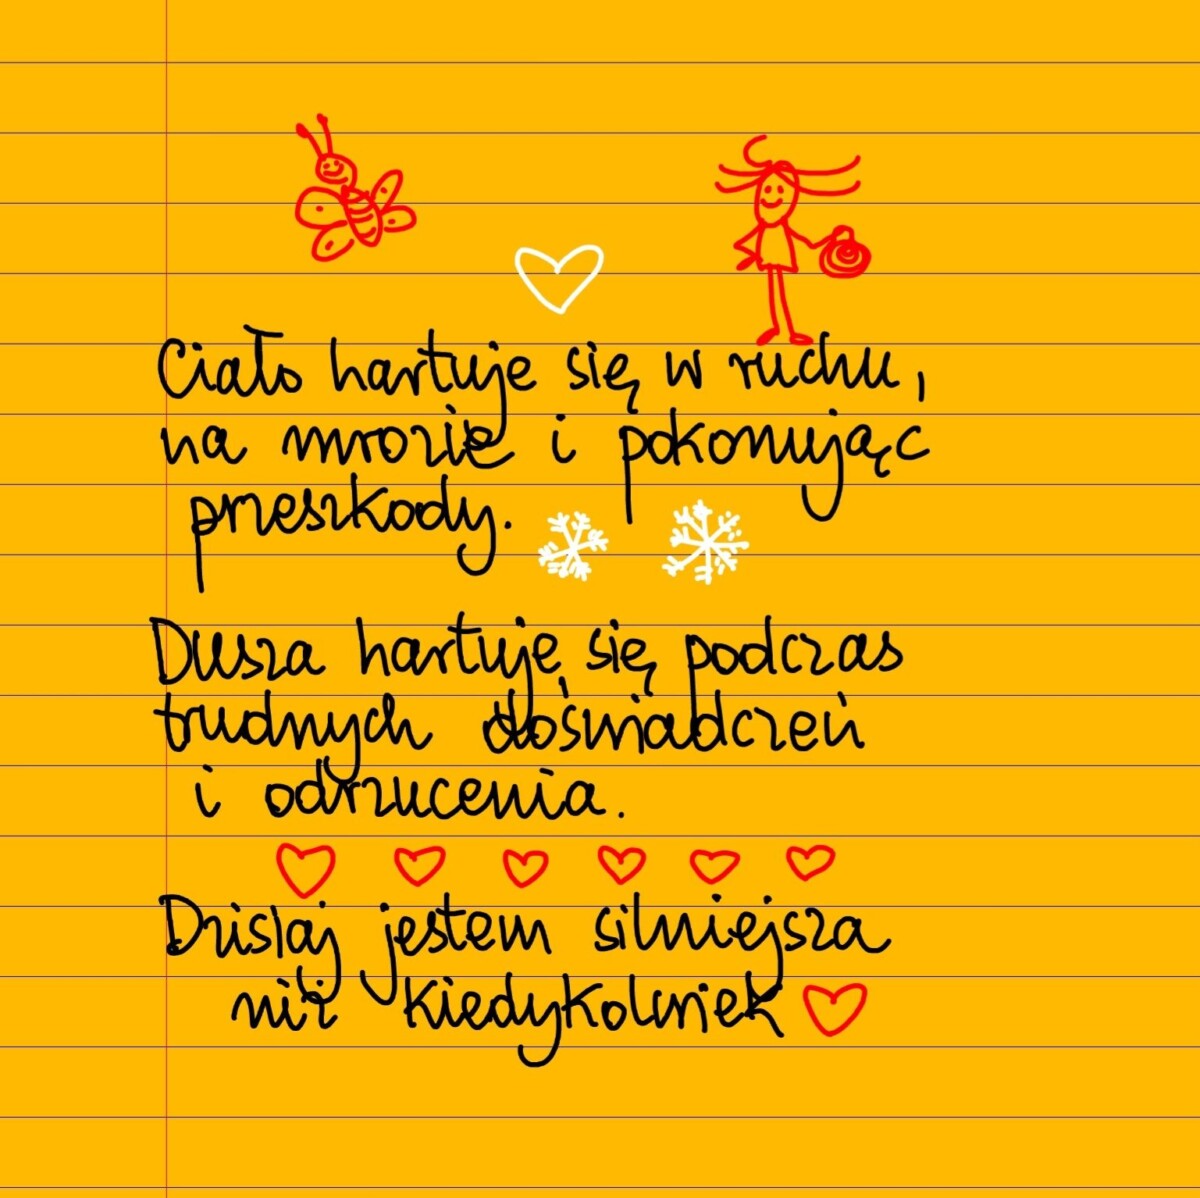 Ciało hartuje się w ruchu,
na mrozie i pokonując
przeszkody.
Dusza hartuje się podczas
trudnych doświadczeń
i odrzucenia.
Dzisiaj jestem silniejsza
niż kiedykolwiek